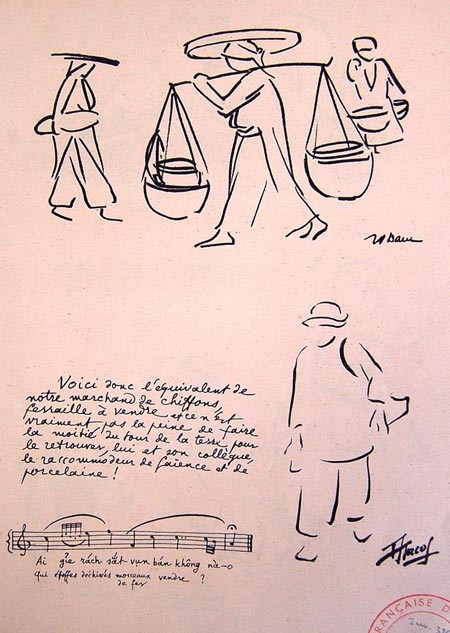 Voici donc l'équivalent de
notre marchand de chiffons,
ferraille à vendre et ce n'est
vraiment pas la peine de faire
la moitié du tour de la terre pour
le retrouver, lui et son collègue
le raccommodeur de faïence et de
porcelaine !
Ai giẻ rách sắt vụn bán không nà-o
qui étoffes déchirés morceaux vendre ?
de fer
FRANÇAISE D